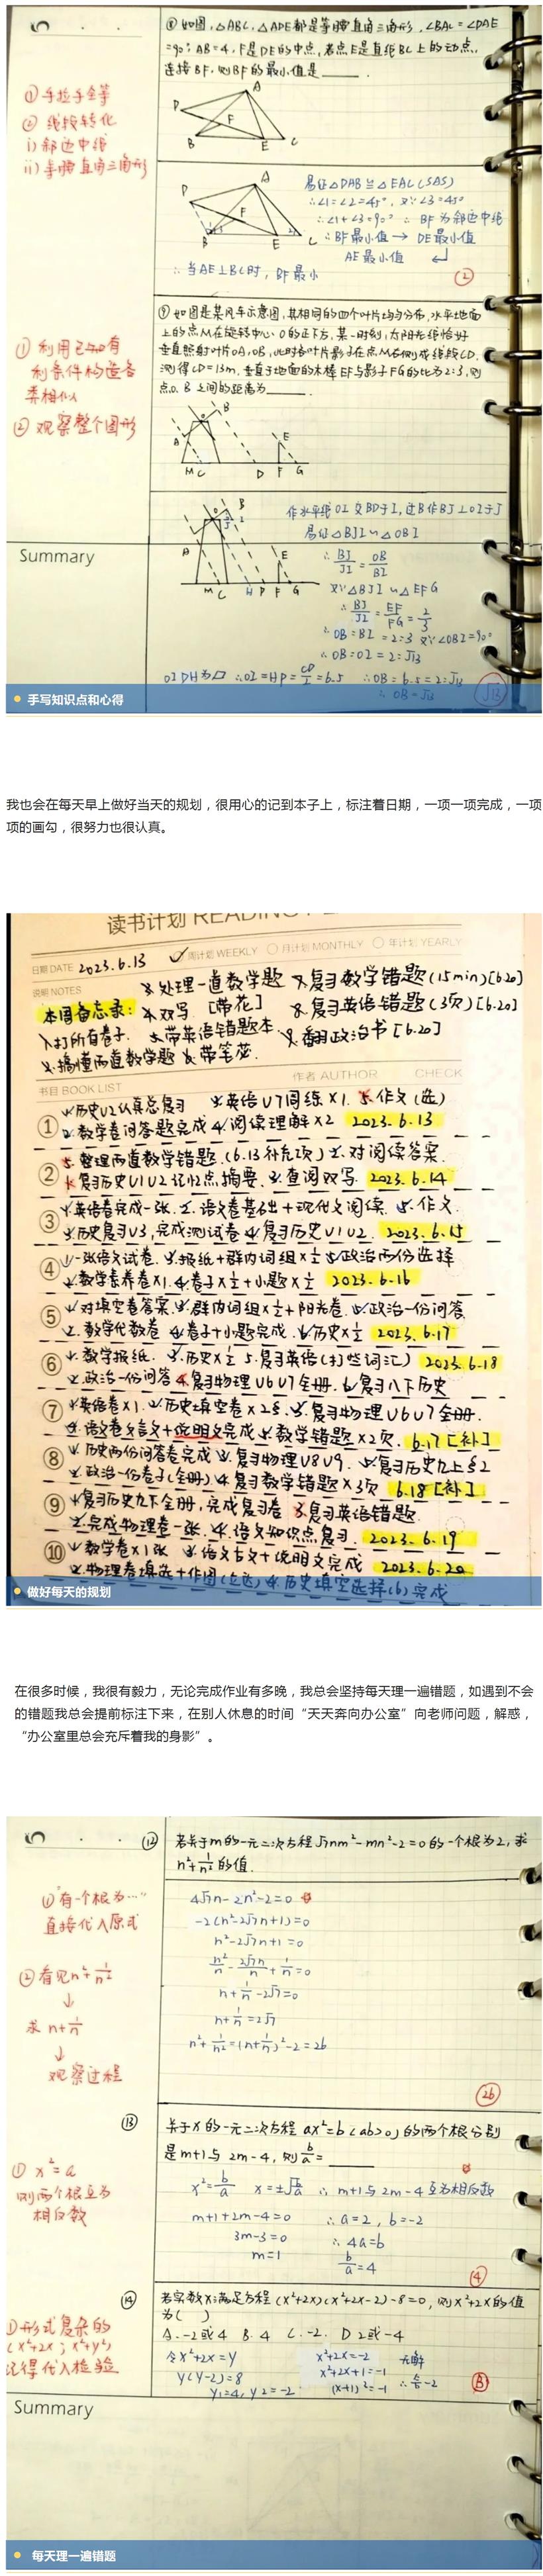 ⑧如图,△ABC,△ADE都是等腰直角三角形,∠BAC=∠DAE
=90°,AB=4,F是DE的中点,若点E是直线BC上的动点,
连接BF,则BF的最小值是____.
①手拉手全等
②线段转化
i)斜边中线
ii)等腰直角三角形
A
D
F
B E C
易证△DAB≌△EAC(SAS)
∴∠1=∠2=45°,又∵∠3=45°
∴∠1+∠3=90° ∴BF为斜边中线
∴BF最小值→DE最小值
AE最小值
∴当AE⊥BC时,BF最小
②
⑨如图是某风车示意图,其相同的四个叶片均匀分布,水平地面
上的点M在旋转中心O的正下方,某一时刻,太阳光线恰好
垂直照射叶片OA,OB,此时各叶片影子在点M右侧成线段CD,
测得CD=13m,垂直于地面的木棒EF与影子FG的比为2:3,则
点O、B之间的距离为____.
①利用已知有
利条件构造各
类相似
②观察整个图形
M C D F G
作水平线OI交BD于I,过B作BJ⊥OI于J
易证△BJI∽△OBI
∴BJ/JI=OB/BI
又∵△BJI∽△EFG
∴BJ/JI=EF/FG=2/3
∴OB:BI=2:3 又∵∠OBI=90°
∴OB:OI=2:√13
OIDH为▱ ∴OI=HD=CD/2=6.5 ∴OB:6.5=2:√13
∴OB=√13
√13
Summary
手写知识点和心得
我也会在每天早上做好当天的规划，很用心的记到本子上，标注着日期，一项一项完成，一项
项的画勾，很努力也很认真。
读书计划 READING
日期 DATE 2023.6.13 周计划 WEEKLY 月计划 MONTHLY 年计划 YEARLY
说明 NOTES
处理一道数学题 复习数学错题(15min)[6.20]
本周备忘录: 双写 [带花] 复习英语错题(3页)[6.20]
打所有卷子. 带英语错题本 翻政治书[6.20]
搞懂两道数学题 带笔芯.
书目 BOOK LIST 作者 AUTHOR CHECK
① 历史U2认真总复习 英语U7同练×1. 作文(选)
数学卷问答题完成 4.阅读理解×2 2023.6.13
② 整理两道数学错题.(6.13补充项) 对阅读答案.
复习历史U1U2记忆点,摘要. 查阅双写. 2023.6.14
③ 英语卷完成一张. 语文卷基础+现代文阅读. 作文.
历史复习U3,完成测试卷 4.复习历史U1U2. 2023.6.15
④ 一张语文试卷. 报纸+群内词组×½ 政治两份选择
数学素养卷×1. 4.卷子×½+小题×½ 2023.6.16
⑤ 对填空卷答案. 群内词组×½+阳光卷. 政治一份问答
数学代数卷 4.卷子+小题完成. 历史×½ 2023.6.17
⑥ 数学报纸. 历史×½ 5.复习英语(打些词汇) 2023.6.18
政治一份问答 4.复习物理U6U7全册. 复习八下历史
⑦ 英语卷×1. 历史填空卷×2. 复习物理U6U7全册.
语文卷文言文+说明文完成 数学错题×2页. 6.17[补]
⑧ 历史两份问答卷完成 复习物理U8U9. 复习历史九上§2
政治一份卷子(全册) 4.复习数学错题×3页 6.18[补]
⑨ 复习历史九下全册,完成复习卷 复习英语错题.
完成物理卷一张. 4.语文知识点复习. 2023.6.19
⑩ 数学卷×1张 语文古文+说明文完成 2023.6.20
物理卷填选+作图 4.历史填空选择(6)完成
做好每天的规划
在很多时候，我很有毅力，无论完成作业有多晚，我总会坚持每天理一遍错题，如遇到不会
的错题我总会提前标注下来，在别人休息的时间“天天奔向办公室”向老师问题，解惑，
“办公室里总会充斥着我的身影”。
⑫ 若关于m的一元二次方程√7nm²-mn²-2=0的一个根为2,求
n²+1/n²的值.
①“有一个根为…”
直接代入原式
②看见n²+1/n²
↓
求n+1/n
↓
观察过程
4√7n-2n²-2=0
-2(n²-2√7n+1)=0
n²-2√7n+1=0
n²/n-2√7n/n+1/n=0
n+1/n-2√7=0
n+1/n=2√7
n²+1/n²=(n+1/n)²-2=26
26
⑬ 关于x的一元二次方程ax²=b(ab>0)的两个根分别
是m+1与2m-4,则b/a=____
①x²=a
则两个根互为
相反数
x²=b/a x=±√b/a ∴m+1与2m-4互为相反数
m+1+2m-4=0 ∴a=2,b=-2
3m-3=0 ∴4a=b
m=1 b/a=4
④
⑭ 若实数x满足方程(x²+2x)(x²+2x-2)-8=0,则x²+2x的值
为( )
A.-2或4 B.4 C.-2. D.2或-4
①形式复杂的
(x²+2x;x²+y²)
记得代入检验
令x²+2x=y x²+2x=-2 无解
y(y-2)=8 x²+2x+1=-1
y₁=4,y₂=-2 (x+1)²=-1 ∴舍-2
B
Summary
每天理一遍错题